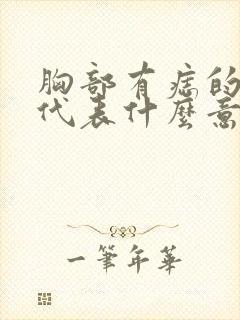 胸部有痣的
代表什麼意
一筆年華